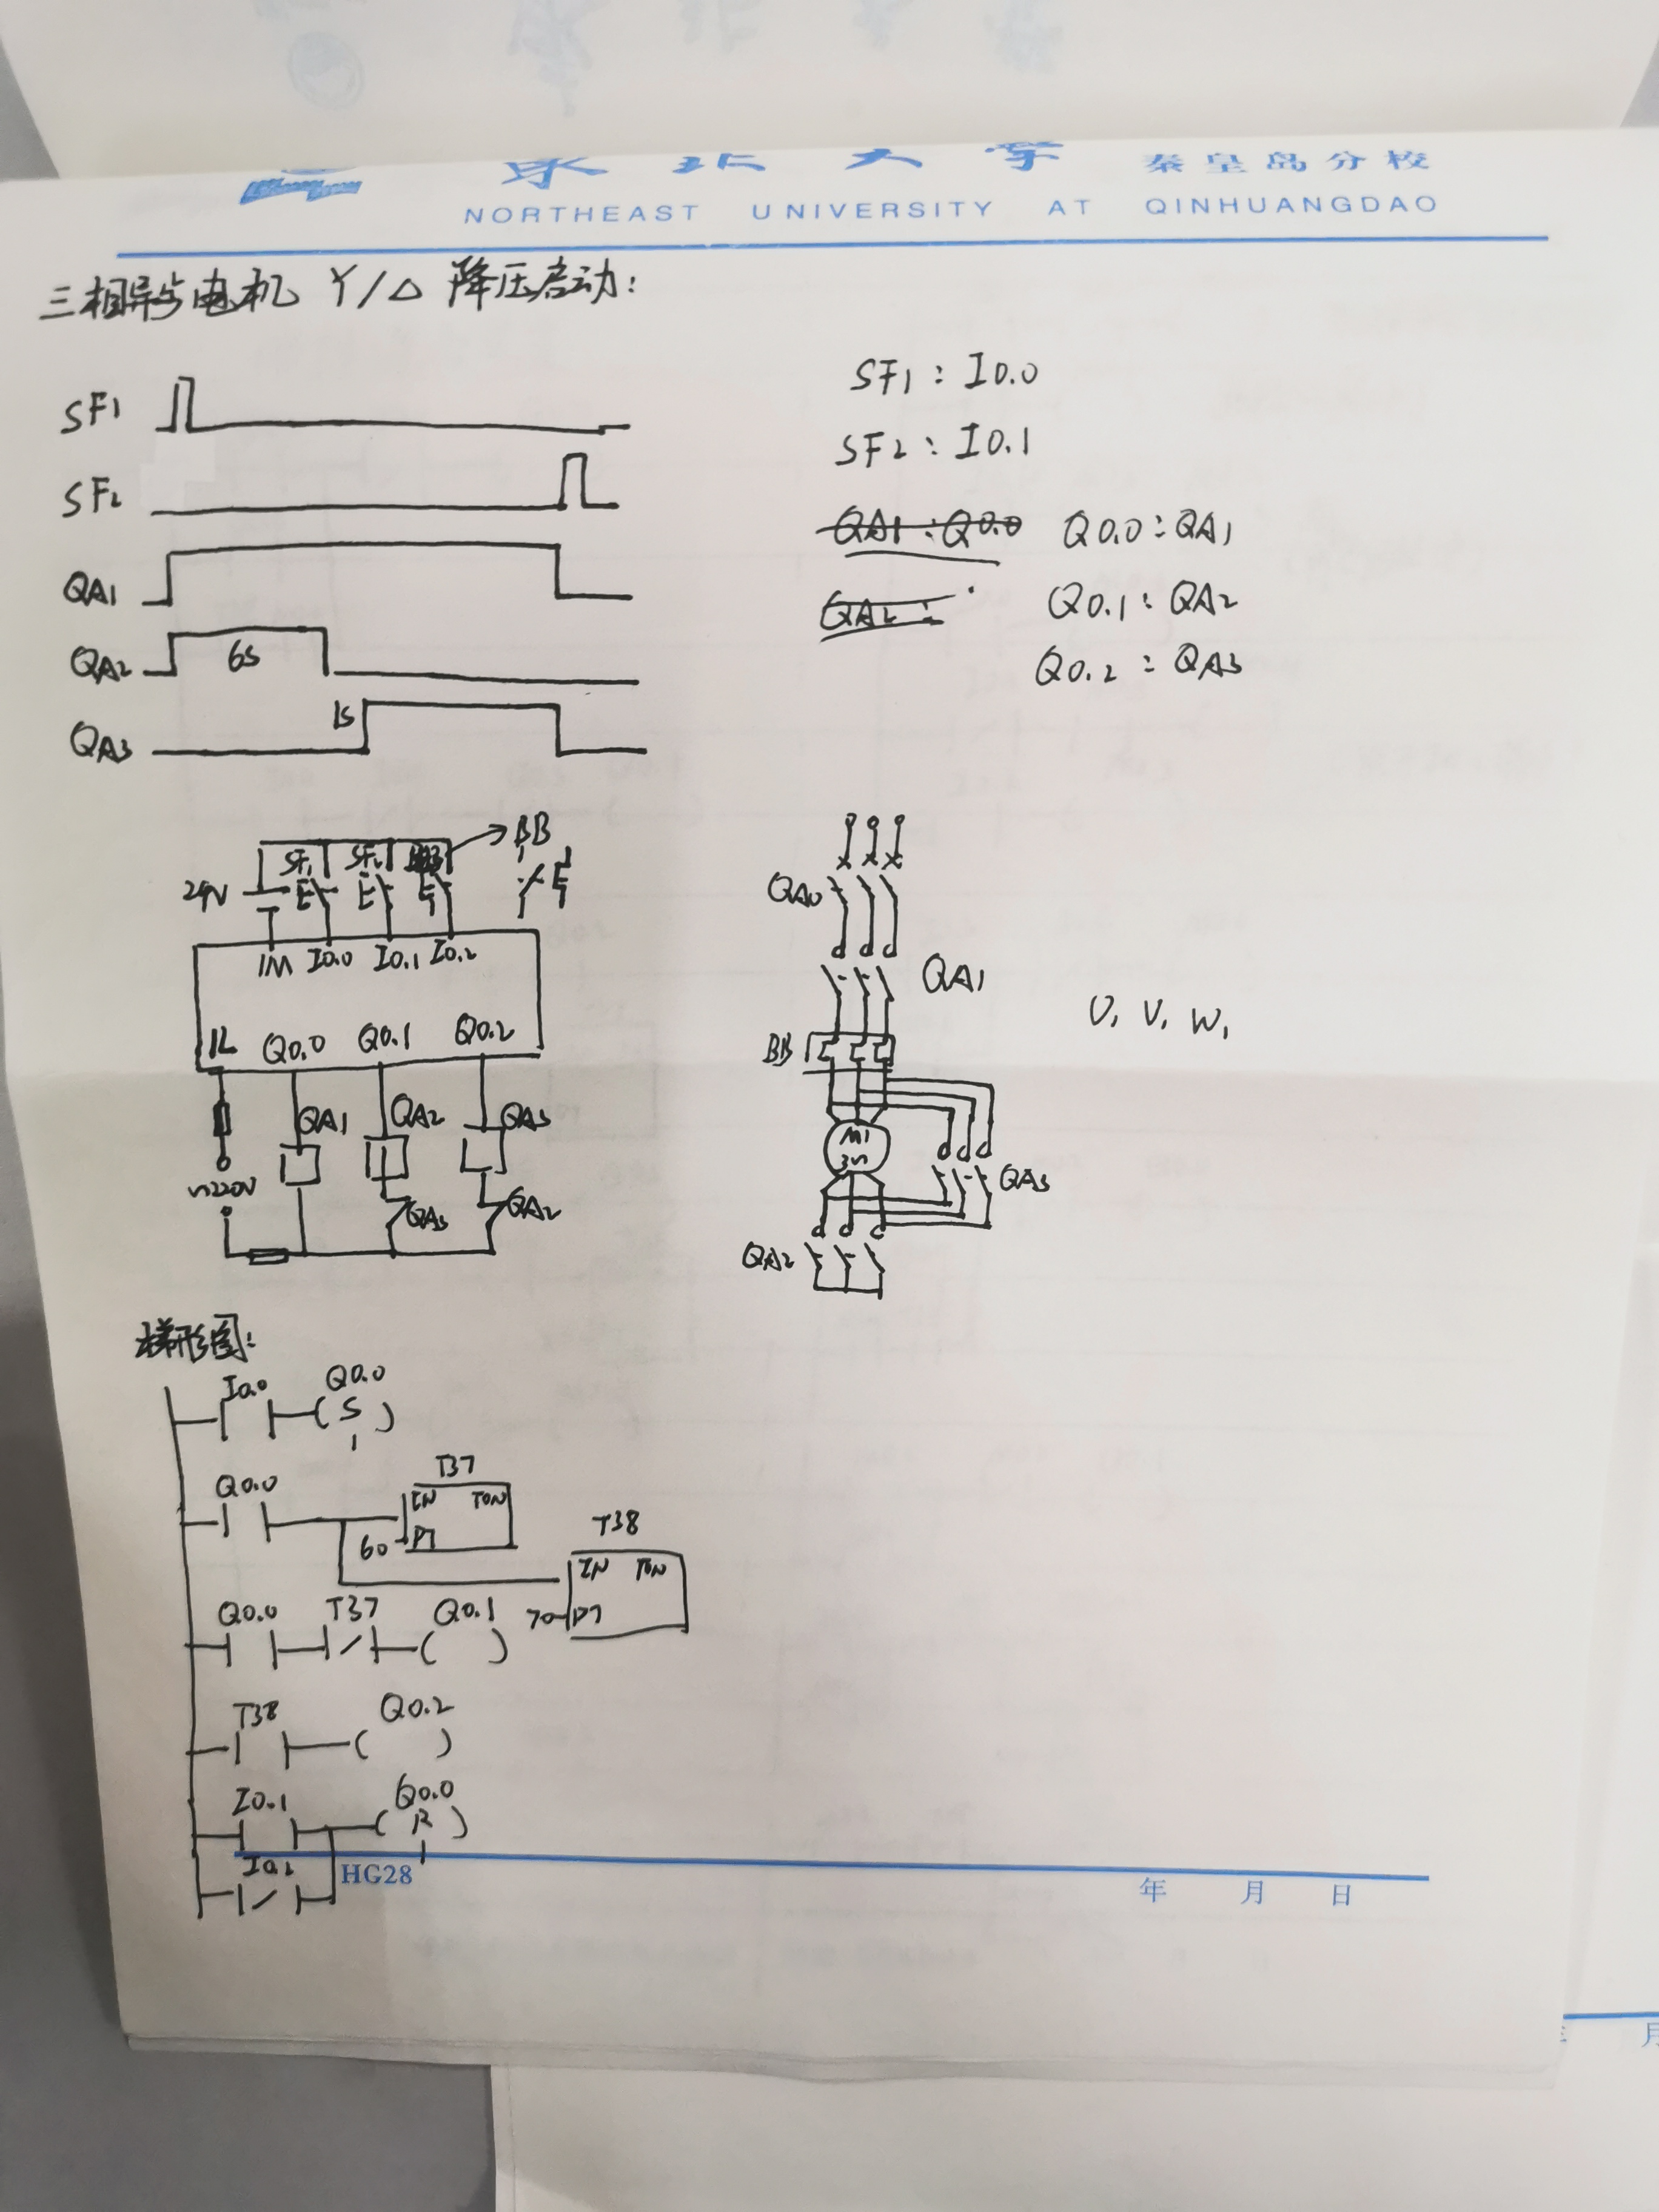 东北大学 秦皇岛分校
NORTHEAST UNIVERSITY AT QINHUANGDAO
三相异步电机 Y/△ 降压启动:
SF1
SF2
QA1
QA2 6S
QA3 1S
SF1 : I0.0
SF2 : I0.1
QA1 : Q0.0 Q0.0 : QA1
QA2 : Q0.1 : QA2
Q0.2 : QA3
BB
SF1 SF2
24V
1M I0.0 I0.1 I0.2
1L Q0.0 Q0.1 Q0.2
QA1 QA2 QA3
~220V
QA3 QA2
QA0
QA1
BB
M1
3~
QA3
QA2
U1 V1 W1
梯形图:
I0.0 Q0.0
S
1
Q0.0 T37
IN TON
60 PT
T38
IN TON
70 PT
Q0.0 T37 Q0.1
T38 Q0.2
I0.1 Q0.0
R
1
I0.2
HG28 年 月 日
月